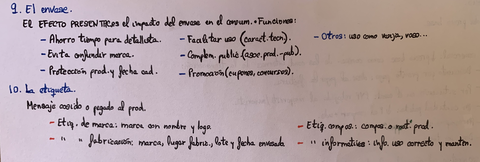 9. El envase.
El EFECTO PRESENTACIÓN es el impacto del envase en el consum. • Funciones:
- Ahorro tiempo para detallista. - Facilitar uso (caract. tecn.). - Otros: uso como vasija, vaso...
- Evita confundir marca. - Complem. public. (asoc. prod.-pub).
- Protección prod. y fecha cad. - Promoción (cupones, concursos).
10. La etiqueta.
Mensaje cosido o pegado al prod.
- Etiq. de marca: marca con nombre y logo. - Etiq. compos.: compos. o mat. prod.
- " " fabricación: marca, lugar fabric., lote y fecha envasado - " " informativas: info. uso correcto y manten.